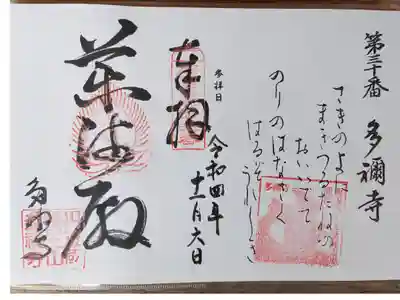 第三十番 多禰寺
さきのよに
まきつるたねの
おいいでて
のりのはなさく
はるぞうれしき
参拝日
令和四年
十一月六日
奉拝